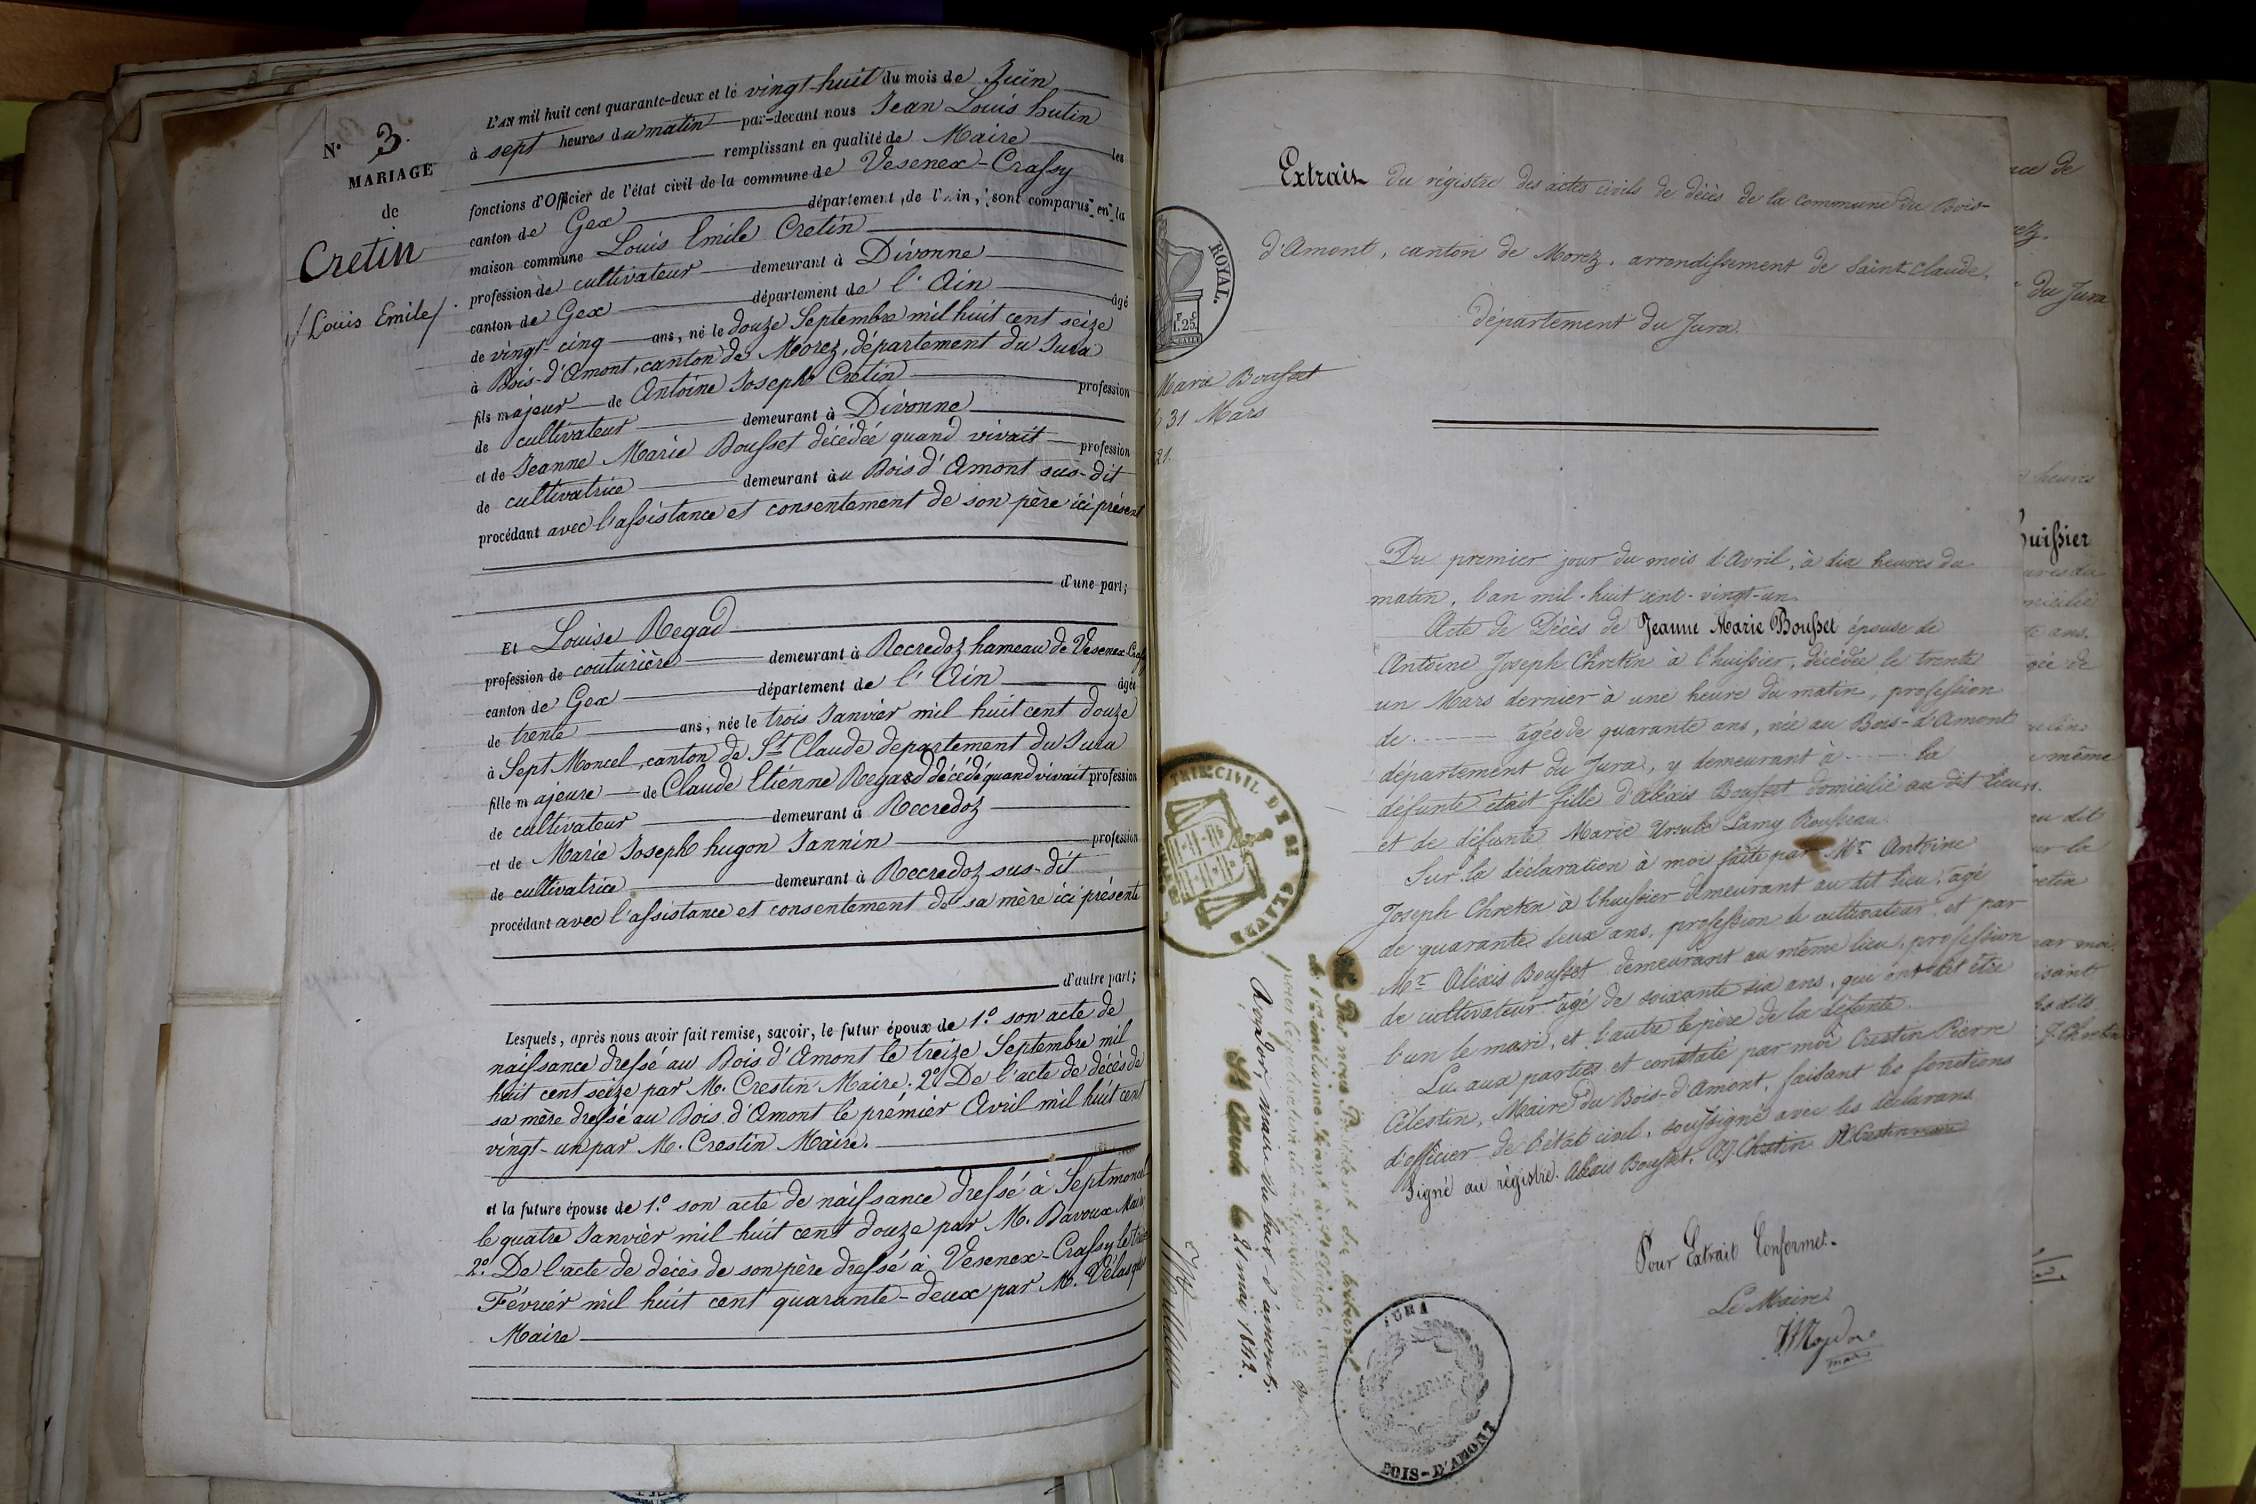 N.º 3.
MARIAGE
de
Cretin
/Louis Emile/.
L'AN mil huit cent quarante-deux et le vingt-huit du mois de Juin
à sept heures du matin par-devant nous Jean Louis hutin
remplissant en qualité de Maire les
fonctions d'Officier de l'état civil de la commune de Vesenex-Crassy
canton de Gex département de l'Ain, sont comparus en la
maison commune Louis Emile Cretin
profession de cultivateur demeurant à Divonne
canton de Gex département de l'Ain âgé
de vingt-cinq ans, né le douze Septembre mil huit cent seize
à Bois-d'Amont, canton de Morez, département du Jura
fils majeur de Antoine Joseph Cretin profession
de cultivateur demeurant à Divonne
et de Jeanne Marie Bousset décédée quand vivait profession
de cultivatrice demeurant au Bois d'Amont sus-dit
procédant avec l'assistance et consentement de son père ici présent
d'une part;
Et Louise Regad
profession de couturière demeurant à Recredoz hameau de Vesenex-Crassy
canton de Gex département de l'Ain âgée
de trente ans, née le trois Janvier mil huit cent douze
à Sept Moncel, canton de St Claude departement du Jura
fille majeure de Claude Etiénne Regad décédé quand vivait profession
de cultivateur demeurant à Recredoz
et de Marie Joseph hugon Jannin profession
de cultivatrice demeurant à Recredoz sus-dit
procédant avec l'assistance et consentement de sa mère ici présente
d'autre part;
Lesquels, après nous avoir fait remise, savoir, le futur époux de 1.º son acte de
naissance dressé au Bois d'Amont le treize Septembre mil
huit cent seize par M. Crestin Maire. 2º De l'acte de décès de
sa mère dressé au Bois d'Amont le prémiér Avril mil huit cent
vingt-un par M. Crestin Maire.
et la future épouse de 1.º son acte de naissance dressé à Septmoncel
le quatre Janvier mil huit cent douze par M. Davoux Maire
2.º De l'acte de décès de son père dressé à Vesenex-Crassy le
Févriér mil huit cent quarante-deux par M.
Maire
Extrait du régistre des actes civils de décès de la commune du Bois-
d'Amont, canton de Morez, arrondissement de Saint-Claude,
département du Jura.
ROYAL.
1.25
Marie Bousset
31 Mars
21.
Du premier jour du mois d'Avril, à dix heures du
matin, l'an mil-huit cent-vingt-un.
Acte de Décès de Jeanne Marie Bousset épouse de
Antoine Joseph Chretin à l'huissier, décédée le trente
un Mars dernier à une heure du matin, profession
de agée de quarante ans, née au Bois-d'Amont
département du Jura, y demeurant à la
défunte était fille d'Aléxis Bousset domicilié au dit lieu,
et de défunte Marie Ursule Lamy Rousseau
Sur la déclaration à moi faite par Mr Antoine
Joseph Chretin à l'huissier demeurant au dit lieu, agé
de quarante deux ans, profession de cultivateur et par
Mr Aléxis Bousset demeurant au même lieu, profession
de cultivateur agé de soixante six ans, qui ont dit être
l'un le mari, et l'autre le père de la défunte.
Lu aux parties et constaté par moi Crestin Pierre
Célestin, Maire du Bois-d'Amont, faisant les fonctions
d'officier de l'état civil, soussigné avec les déclarans
Signé au régistre. Aléxis Bousset, A.J. Chretin P.C. Crestin maire
Pour Extrait Conforme.
Le Maire
maire
TRIB. CIVIL DE ST CLAUDE
St Claude le 21 mai 1842.
maire du bois d'amont.
JURA
MAIRIE
BOIS-D'AMONT
du Jura
heures
huissier
même